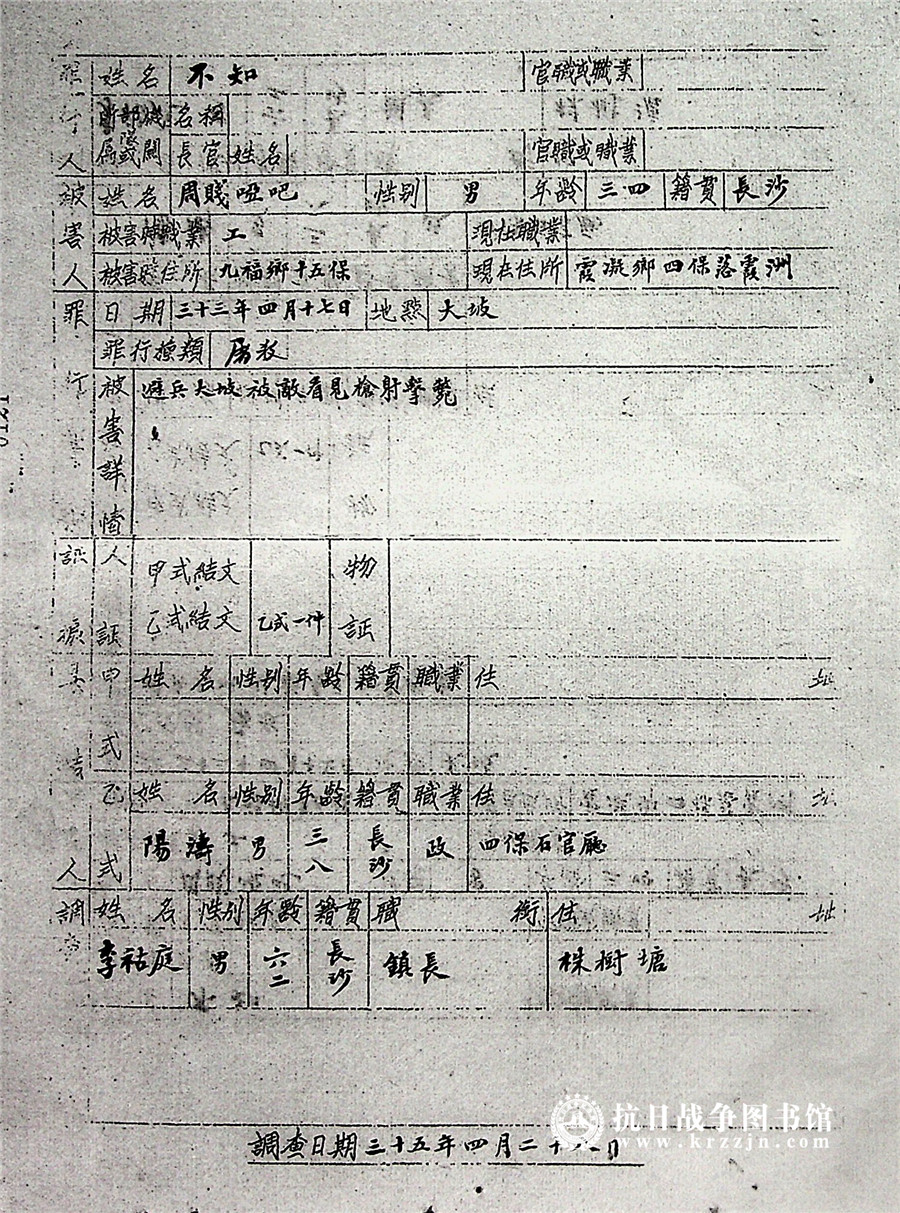 罪行人 姓名 不知 官職或職業
所屬部隊或機關 名稱
長官姓名 官職或職業
被害人 姓名 周賤啞吧 性别 男 年齡 三四 籍貫 長沙
被害時職業 工 現在職業
被害時住所 九福鄉十五保 現在住所 霞凝鄉四保落霞洲
罪行 日期 三十三年四月十七日 地點 大坡
罪行種類 屠殺
被害詳情 避兵大坡被敵看見槍射擊斃
証 人証 甲式結文 物証
乙式結文 乙式一件
具結人 甲式 姓名 性别 年齡 籍貫 職業 住址
乙式 姓名 性别 年齡 籍貫 職業 住址
陽濤 男 三八 長沙 政 四保石官廳
調查 姓名 性别 年齡 籍貫 職銜 住址
李祜庭 男 六二 長沙 鎮長 株樹塘
調查日期三十五年四月二十日
抗日战争图书馆
www.krzzjn.com